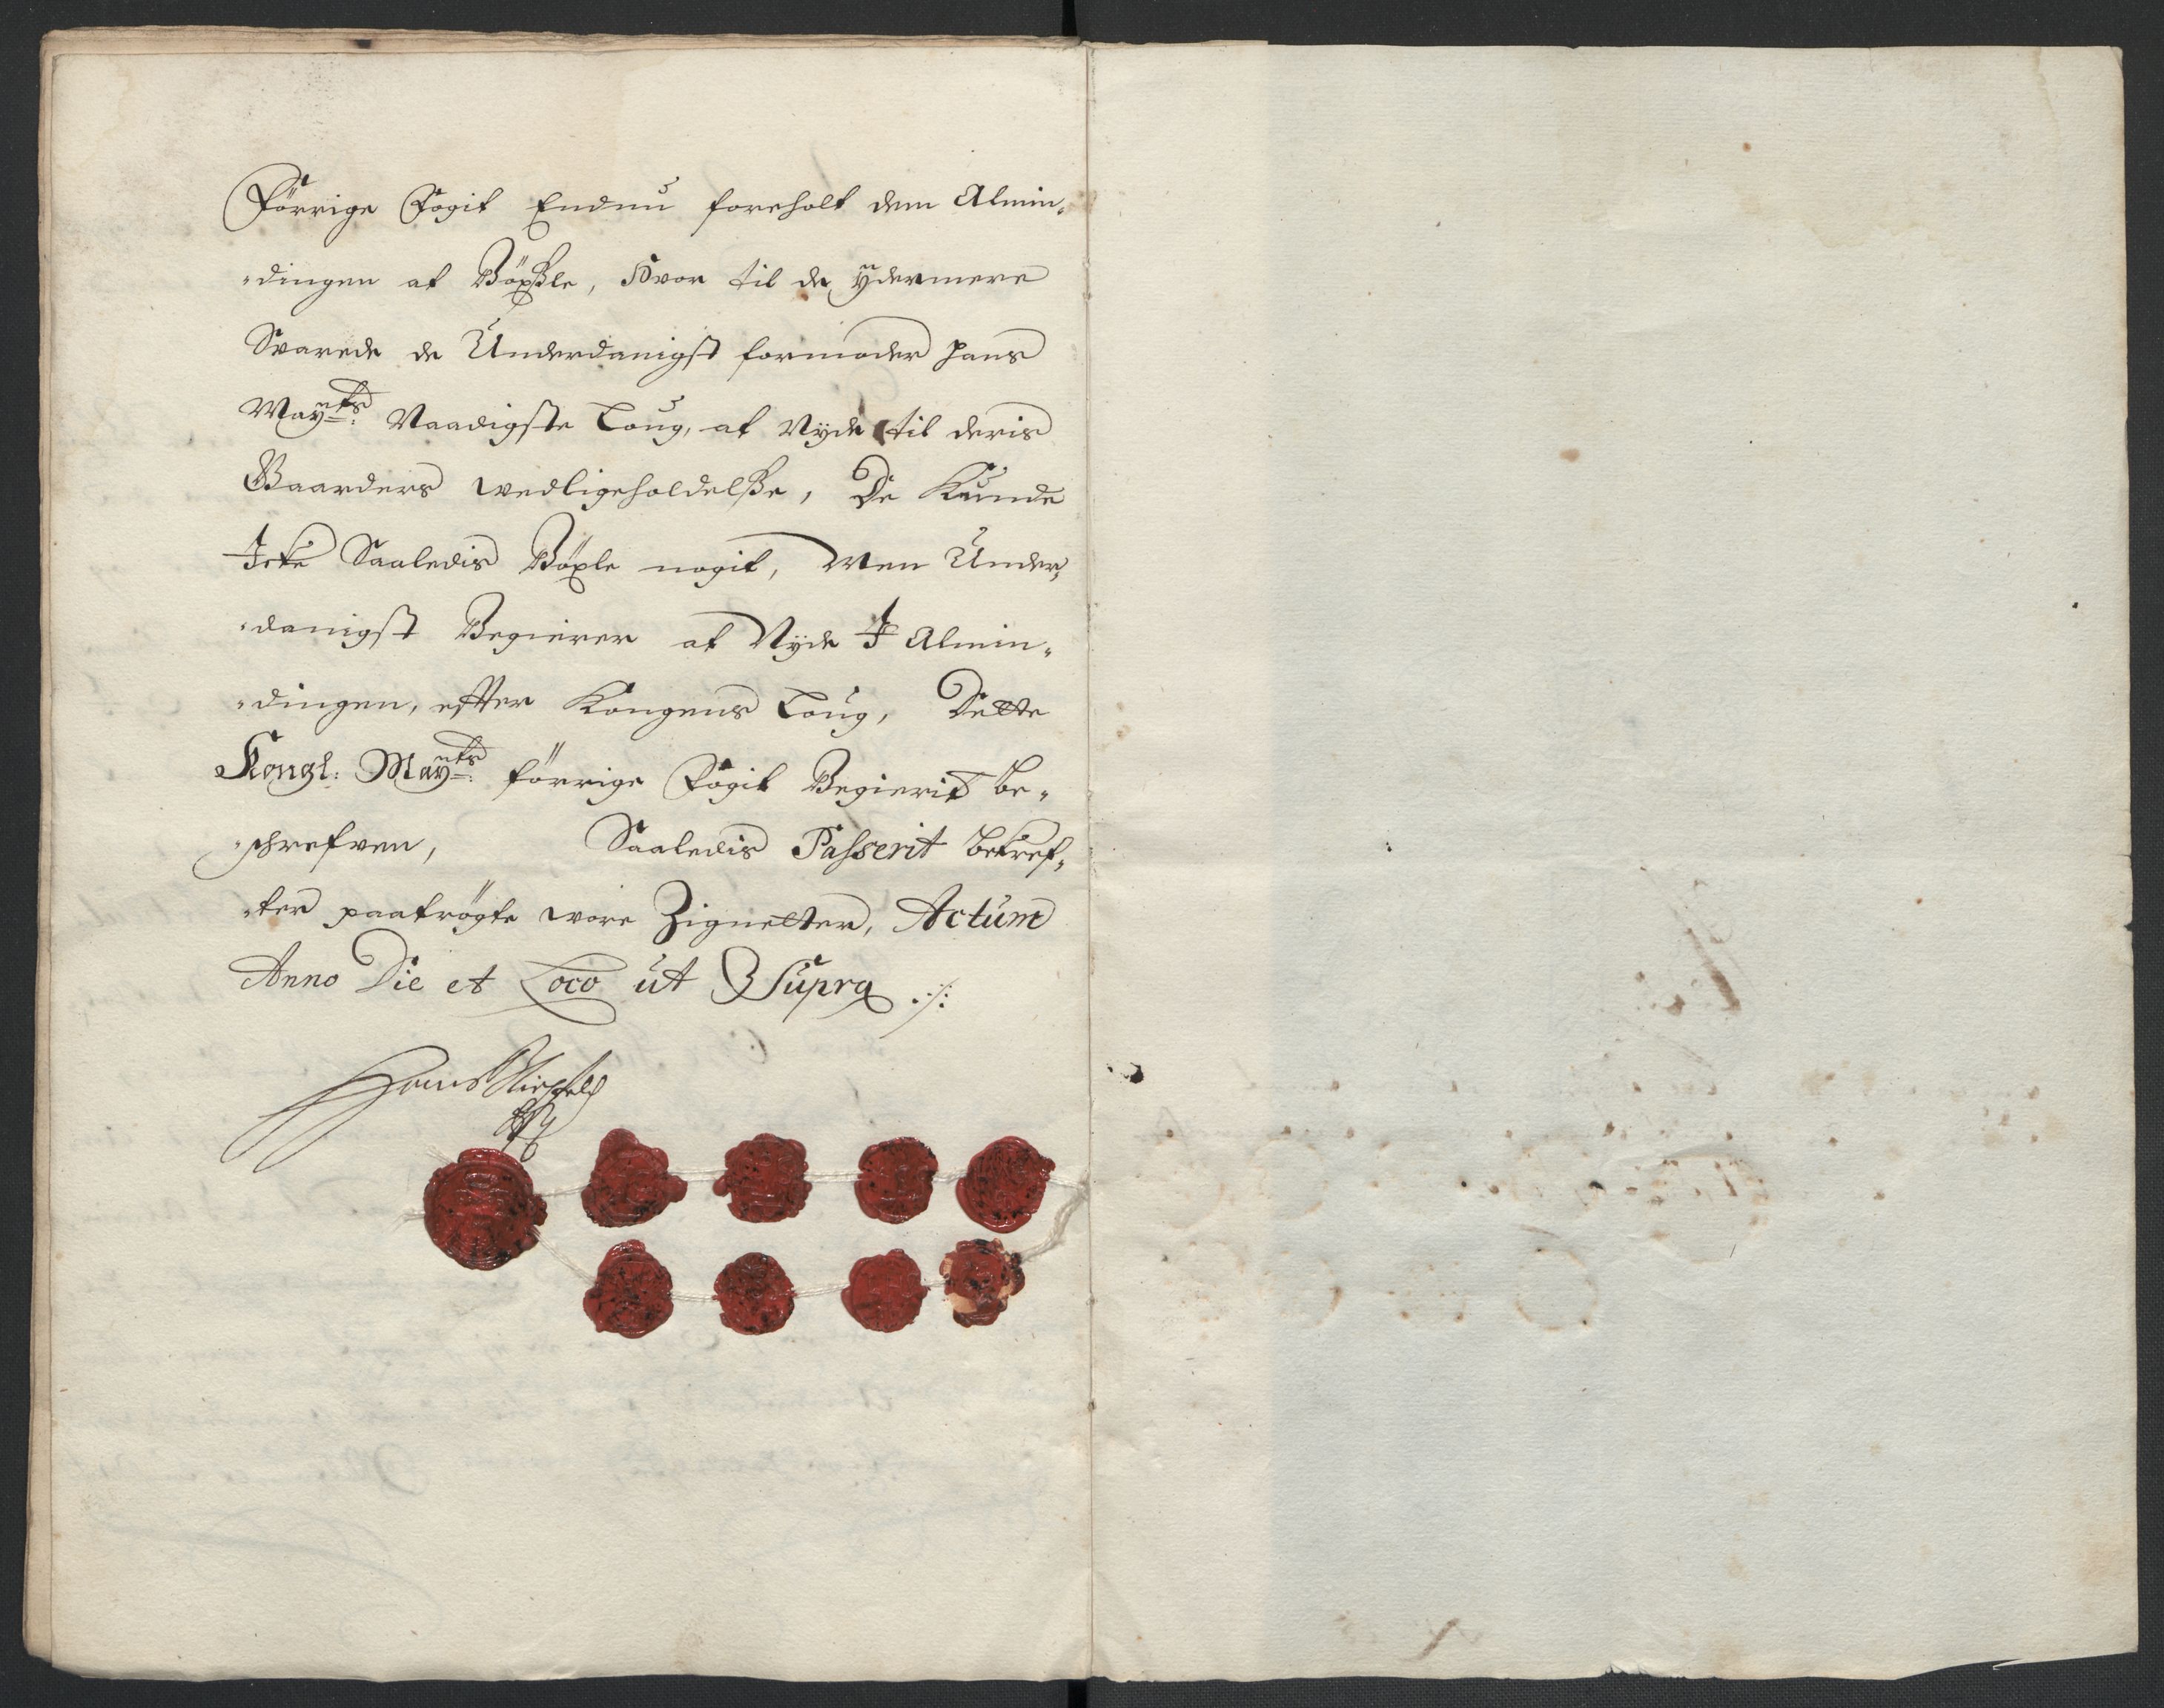 Förrige Fogit Endnu foreholt dem Almin-
-dingen at Böxßle, Hvor til de ÿdermere
Svarede de Underdanigst formoder Hans
Maÿts: Naadigste Loug, at Nÿde til deris
Gaarders wedligeholdelße, De Kunde
Icke Saaledis Böxle nogit, Men Under-
-danigst Begierer at Nÿde I Almin-
-dingen, effter Kongens Loug, Dette
Kongl: Maÿts: förrige Fogit Begierit be-
-schrefven, Saaledis Passerit bekref-
-ter paatrögte wore Zignetter, Actum
Anno Die et Loco ut Supra ./:
Hans